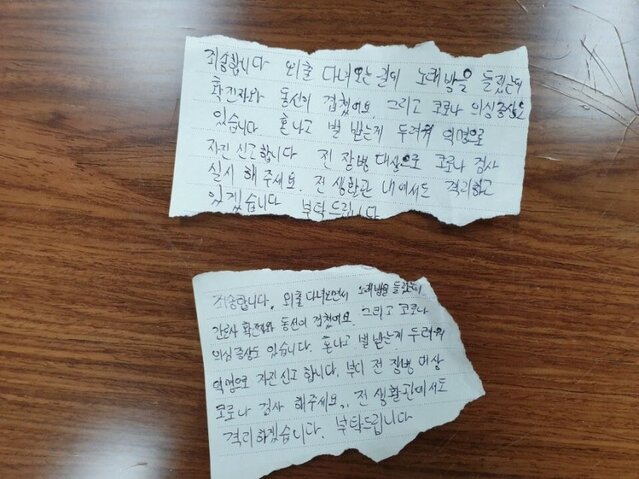 죄송합니다 외출 다녀오는길에 노래방을 들렸는데
확진자와 동선이 겹쳤어요. 그리고 코로나 의심증상도
있습니다 혼나고 벌 받는게 두려워 익명으로
자진신고합니다 전 장병 대상으로 코로나 검사
실시 해주세요. 전 생활관 내에서도 격리하고
있겠습니다 부탁드립니다
죄송합니다. 외출 다녀오면서 노래방을 들렸는데
간호사 확진자와 동선이 겹쳤어요. 그리고 코로나
의심증상도 있습니다. 혼나고 벌 받는게 두려워
익명으로 자진신고 합니다. 부디 전 장병 대상
코로나 검사 해주세요.. 전 생활관에서도
격리하겠습니다. 부탁드립니다